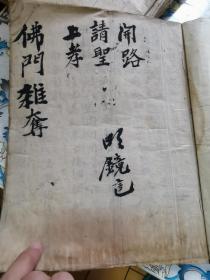 開路
請聖
上孝
明鏡記
佛門雜奪